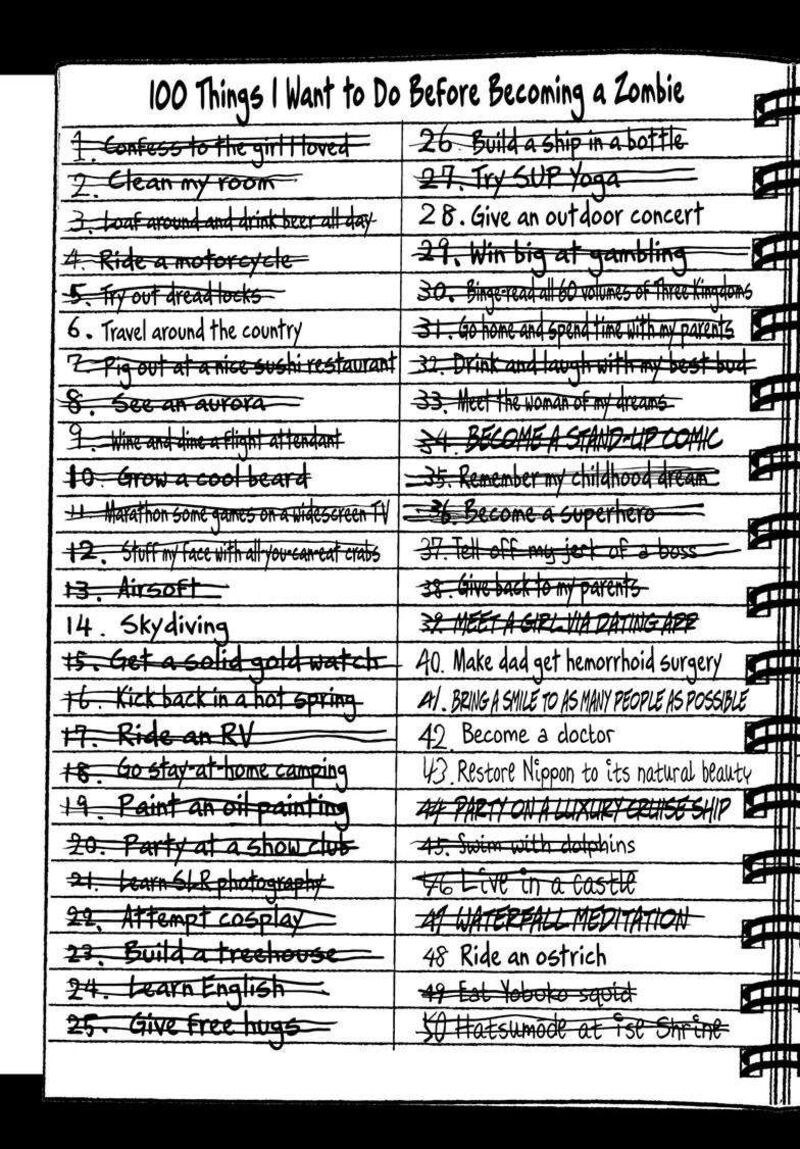 100 Things I Want to Do Before Becoming a Zombie
1. Confess to the girl I loved
2. Clean my room
3. Loaf around and drink beer all day
4. Ride a motorcycle
5. Try out dreadlocks
6. Travel around the country
7. Pig out at a nice sushi restaurant
8. See an aurora
9. Wine and dine a flight attendant
10. Grow a cool beard
11. Marathon some games on a widescreen TV
12. Stuff my face with all-you-can-eat crabs
13. Airsoft
14. Skydiving
15. Get a solid gold watch
16. Kick back in a hot spring
17. Ride an RV
18. Go stay-at-home camping
19. Paint an oil painting
20. Party at a show club
21. Learn SLR photography
22. Attempt cosplay
23. Build a treehouse
24. Learn English
25. Give free hugs
26. Build a ship in a bottle
27. Try SUP Yoga
28. Give an outdoor concert
29. Win big at gambling
30. Binge-read all 60 volumes of Three Kingdoms
31. Go home and spend time with my parents
32. Drink and laugh with my best bud
33. Meet the woman of my dreams
34. BECOME A STAND-UP COMIC
35. Remember my childhood dream
36. Become a superhero
37. Tell off my jerk of a boss
38. Give back to my parents
39. MEET A GIRL VIA DATING APP
40. Make dad get hemorrhoid surgery
41. BRING A SMILE TO AS MANY PEOPLE AS POSSIBLE
42. Become a doctor
43. Restore Nippon to its natural beauty
44 PARTY ON A LUXURY CRUISE SHIP
45. Swim with dolphins
46 Live in a castle
47 WATERFALL MEDITATION
48 Ride an ostrich
49 Eat Yobuko squid
50 Hatsumode at Ise Shrine